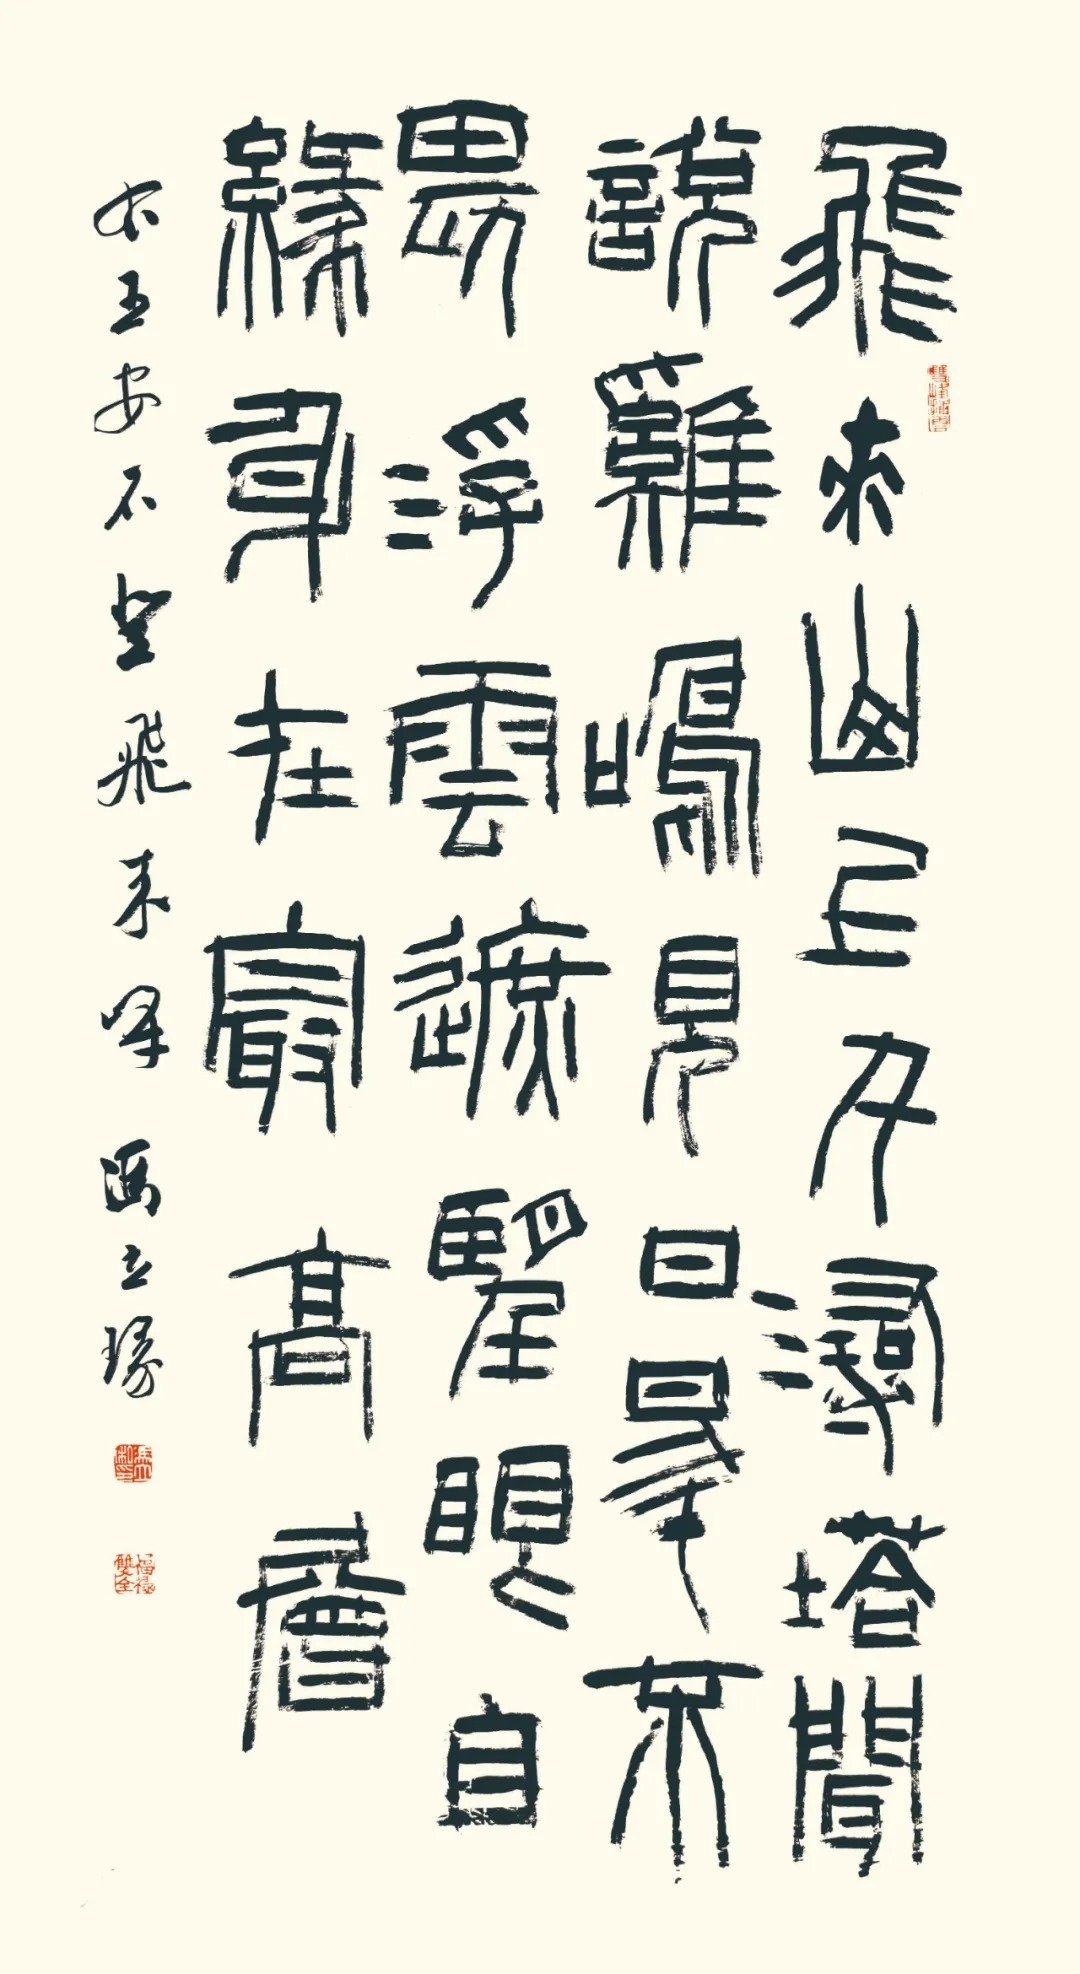 飛來山上千尋塔聞
說雞鳴見日昇不
畏浮雲遮望眼自
緣身在最高層
右王安石登飛來峰 馮立
福祿雙全